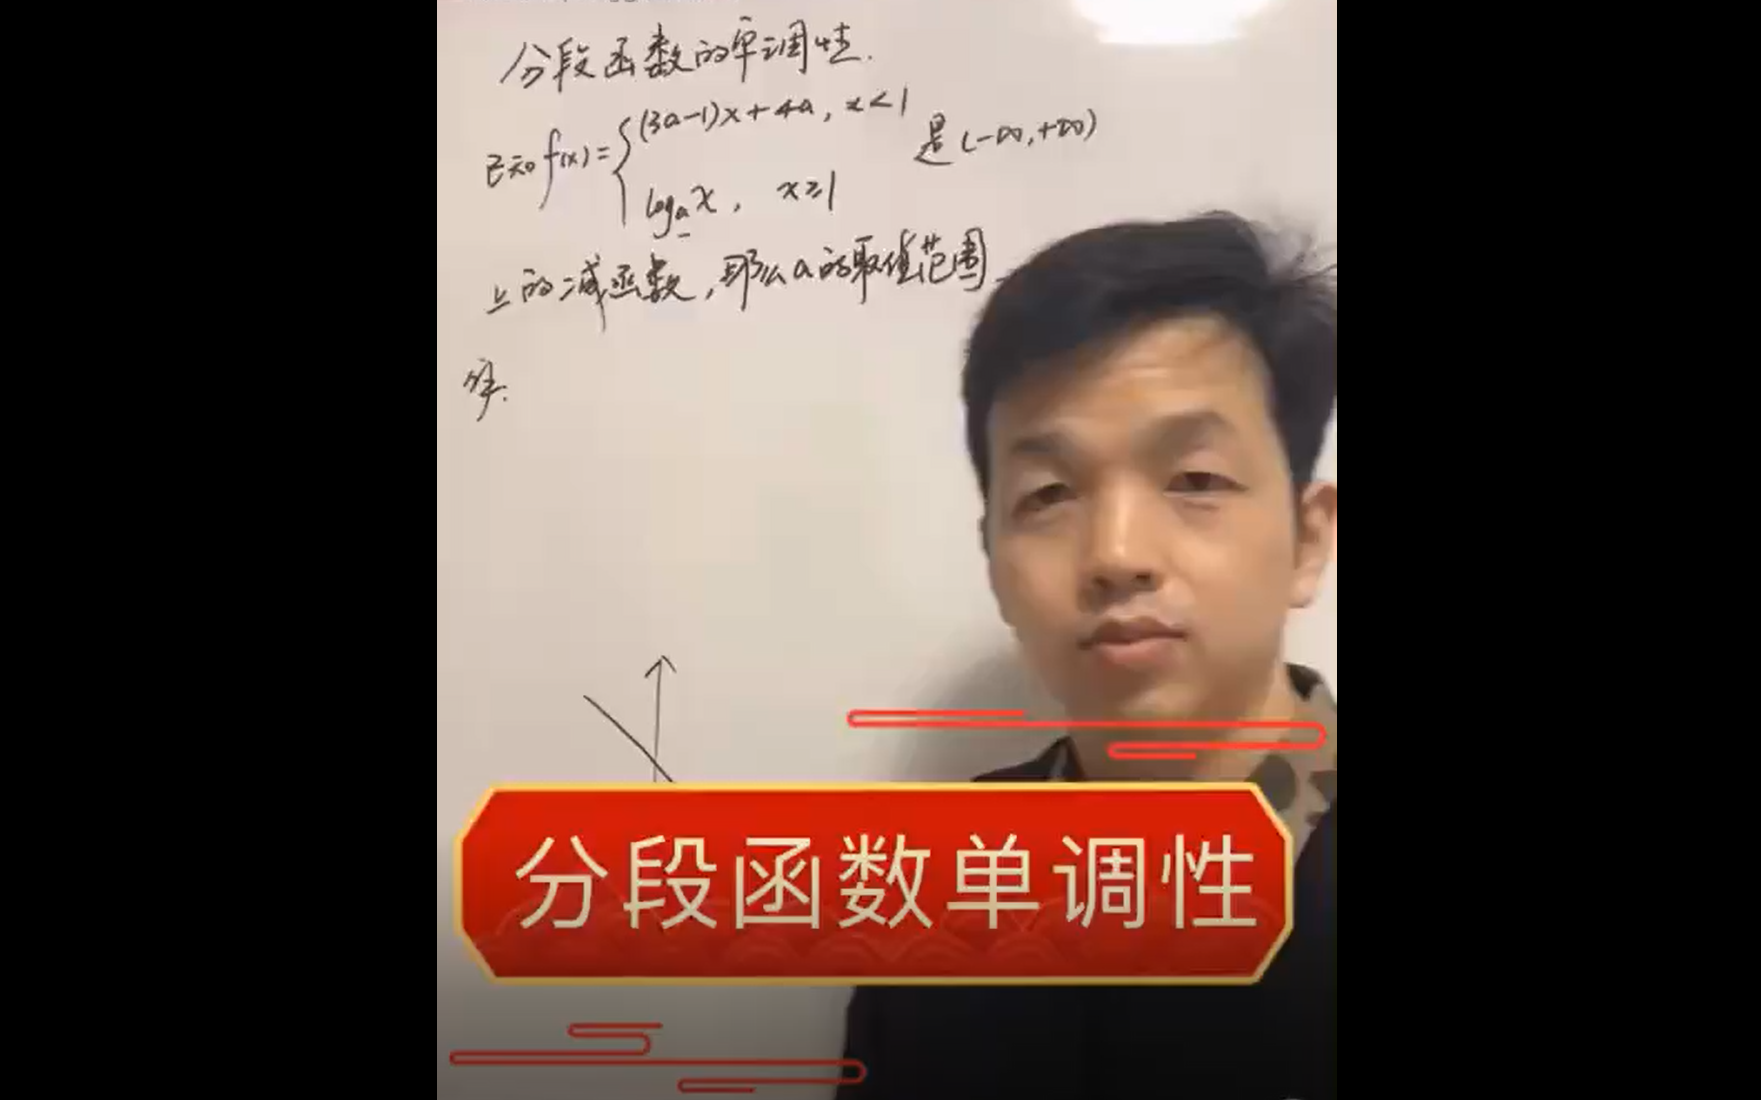 分段函数的单调性.
已知f(x)={(3a-1)x+4a, x<1
logₐx, x≥1
是(-∞,+∞)
上的减函数,那么a的取值范围
分段函数单调性